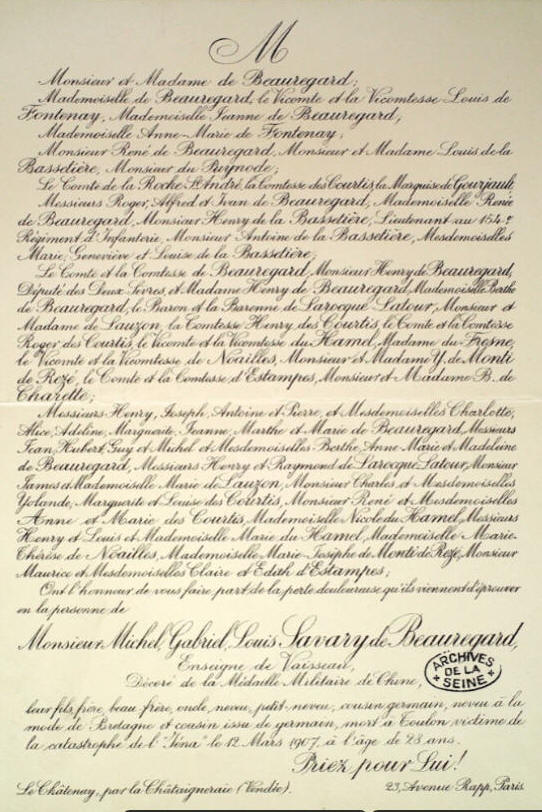 M
Monsieur et Madame de Beauregard;
Mademoiselle de Beauregard, le Vicomte et la Vicomtesse Louis de
Fontenay, Mademoiselle Jeanne de Beauregard;
Mademoiselle Anne-Marie de Fontenay;
Monsieur René de Beauregard, Monsieur et Madame Louis de la
Bassetière, Monsieur du Puynode;
Le Comte de la Roche St André, la Comtesse des Courtis, la Marquise de Gourjault,
Messieurs Roger, Alfred et Ivan de Beauregard, Mademoiselle Renée
de Beauregard, Monsieur Henry de la Bassetière, Lieutenant au 154e
Régiment d'Infanterie, Monsieur Antoine de la Bassetière, Mesdemoiselles
Marie, Geneviève et Louise de la Bassetière;
Le Comte et la Comtesse de Beauregard, Monsieur Henry de Beauregard,
Député des Deux Sèvres, et Madame Henry de Beauregard, Mademoiselle Berthe
de Beauregard, le Baron et la Baronne de Larocque Latour, Monsieur et
Madame de Lauzon, la Comtesse Henry des Courtis, le Comte et la Comtesse
Roger des Courtis, le Vicomte et la Vicomtesse du Hamel, Madame du Fresne,
le Vicomte et la Vicomtesse de Noailles, Monsieur et Madame Y. de Monti
de Rezé, le Comte et la Comtesse d'Estampes, Monsieur et Madame B. de
Charette;
Messieurs Henry, Joseph, Antoine et Pierre, et Mesdemoiselles Charlotte,
Alice, Adeline, Marguerite, Jeanne, Marthe et Marie de Beauregard, Messieurs
Jean, Hubert, Guy et Michel et Mesdemoiselles Berthe, Anne-Marie et Madeleine
de Beauregard, Messieurs Henry et Raymond de Larocque Latour, Monsieur
James et Mademoiselle Marie de Lauzon, Monsieur Charles et Mesdemoiselles
Yolande, Marguerite et Louise des Courtis, Monsieur René et Mesdemoiselles
Anne et Marie des Courtis, Mademoiselle Nicole du Hamel, Messieurs
Henry et Louis et Mademoiselle Marie du Hamel, Mademoiselle Marie-
Thérèse de Noailles, Mademoiselle Marie-Josèphe de Monti de Rezé, Monsieur
Maurice et Mesdemoiselles Claire et Edith d'Estampes;
Ont l'honneur de vous faire part de la perte douloureuse qu'ils viennent d'éprouver
en la personne de
Monsieur Michel, Gabriel, Louis Savary de Beauregard,
Enseigne de Vaisseau,
Décoré de la Médaille Militaire de Chine,
ARCHIVES
DE LA
+ SEINE +
leur fils, frère, beau-frère, oncle, neveu, petit-neveu, cousin germain, neveu à la
mode de Bretagne et cousin issu de germain, mort à Toulon victime de
la catastrophe de l'"Iéna" le 12 Mars 1907, à l'âge de 28 ans.
Priez pour Lui!
Le Châtenay, par la Châtaigneraie (Vendée).
23, Avenue Rapp, Paris.